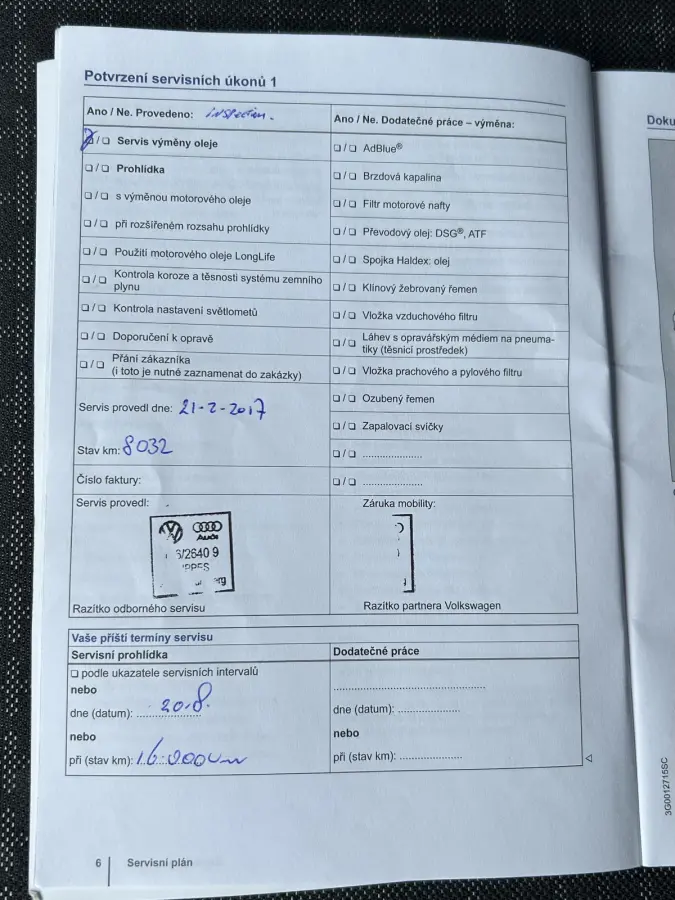 Potvrzení servisních úkonů 1
Ano / Ne. Provedeno: inspection.
❏ / ❏ Servis výměny oleje
❏ / ❏ Prohlídka
❏ / ❏ s výměnou motorového oleje
❏ / ❏ při rozšířeném rozsahu prohlídky
❏ / ❏ Použití motorového oleje LongLife
❏ / ❏ Kontrola koroze a těsnosti systému zemního
plynu
❏ / ❏ Kontrola nastavení světlometů
❏ / ❏ Doporučení k opravě
❏ / ❏ Přání zákazníka
(i toto je nutné zaznamenat do zakázky)
Servis provedl dne: 21-2-2017
Stav km: 8032
Číslo faktury:
Servis provedl:
Audi
/2640 9
Razítko odborného servisu
Ano / Ne. Dodatečné práce – výměna:
❏ / ❏ AdBlue®
❏ / ❏ Brzdová kapalina
❏ / ❏ Filtr motorové nafty
❏ / ❏ Převodový olej: DSG®, ATF
❏ / ❏ Spojka Haldex: olej
❏ / ❏ Klínový žebrovaný řemen
❏ / ❏ Vložka vzduchového filtru
❏ / ❏ Láhev s opravářským médiem na pneuma-
tiky (těsnicí prostředek)
❏ / ❏ Vložka prachového a pylového filtru
❏ / ❏ Ozubený řemen
❏ / ❏ Zapalovací svíčky
❏ / ❏ .....................
❏ / ❏ .....................
Záruka mobility:
Razítko partnera Volkswagen
Vaše příští termíny servisu
Servisní prohlídka
❏ podle ukazatele servisních intervalů
nebo
dne (datum):
nebo
při (stav km):
Dodatečné práce
.....................................................
dne (datum): .....................
nebo
při (stav km): .....................
6 Servisní plán
Doku
3G0012715SC